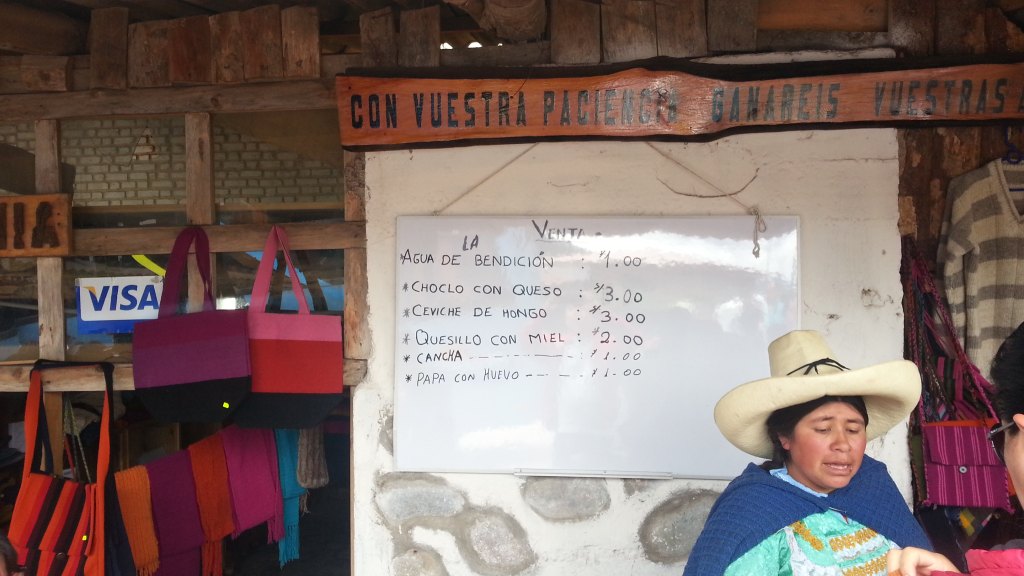 CON VUESTRA PACIENCIA GANAREIS VUESTRAS A
VISA
LA VENTA
*AGUA DE BENDICIÓN : S/1.00
*CHOCLO CON QUESO : S/3.00
*CEVICHE DE HONGO : S/3.00
* QUESILLO CON MIEL : S/2.00
* CANCHA ---------- S/1.00
* PAPA CON HUEVO ----- S/1.00